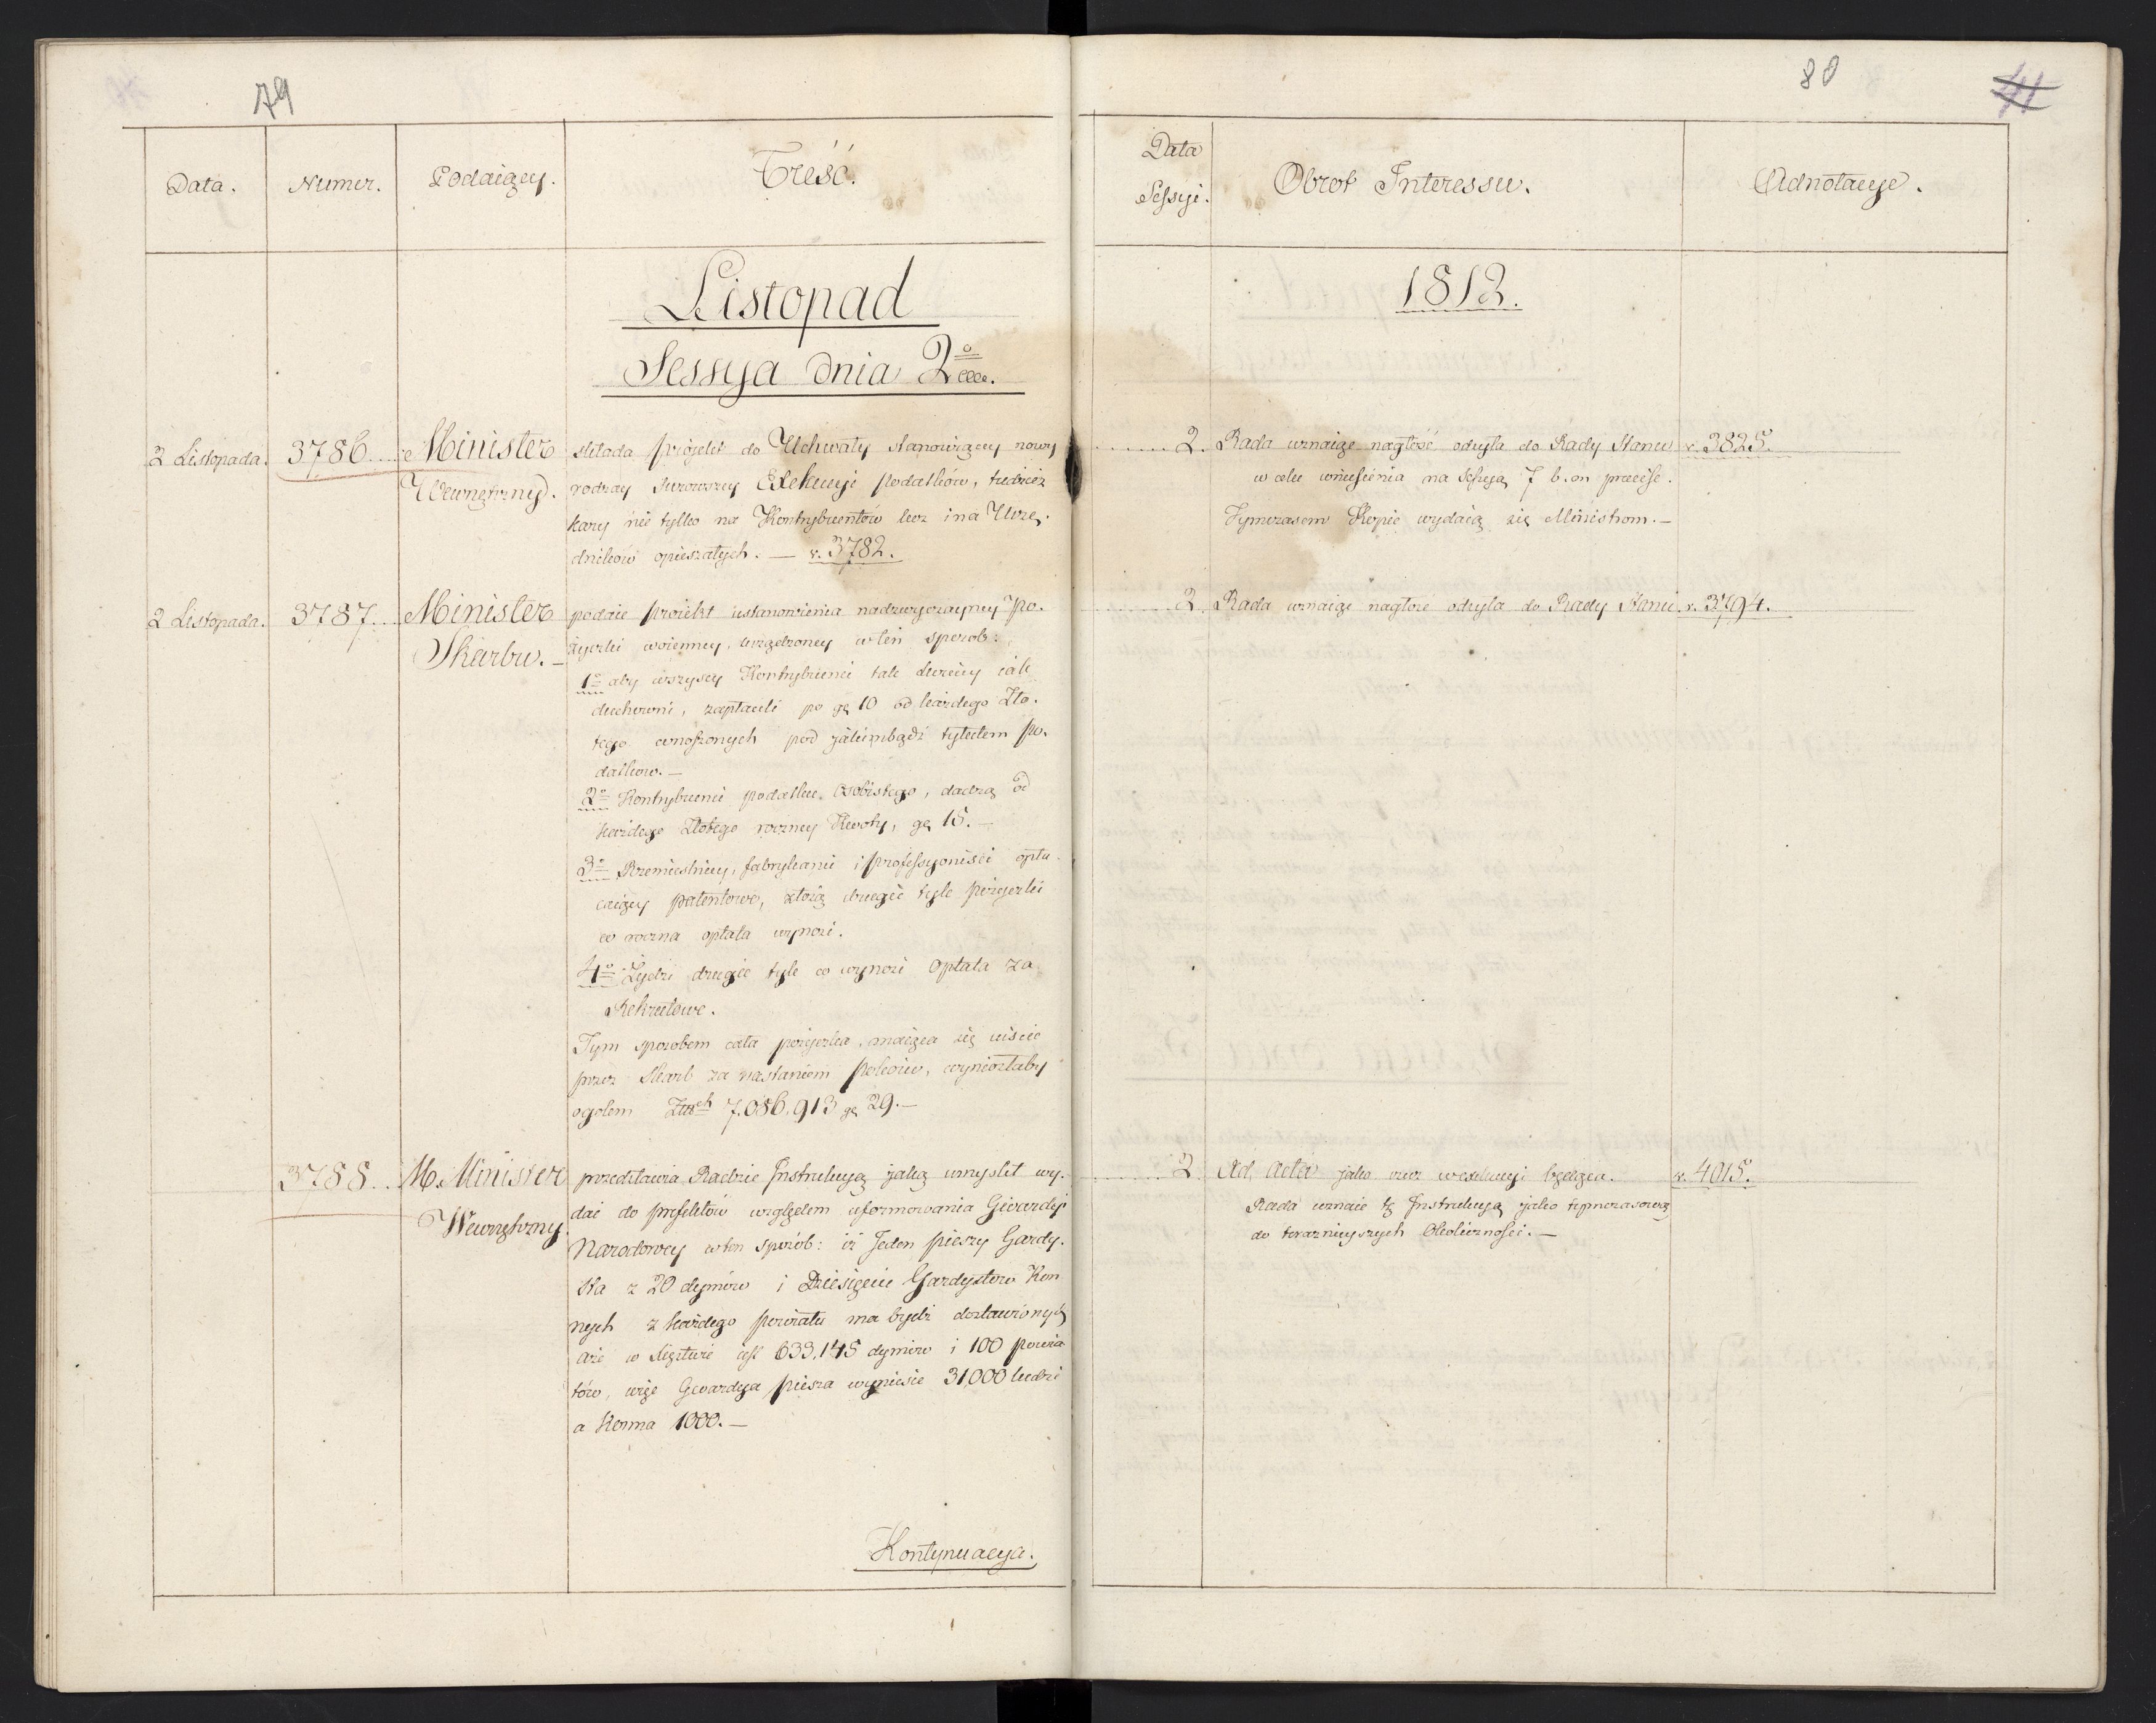 79
Data.
Numer.
Podaiący.
Treść.
Listopad
Sessya dnia 2º
2 Listopada.
3786
Minister
Wewnętrzny.
składa projekt do Uchwały stanowiący nowy
rodzay surowszey Exekucyi podatków, tudzież
kary nie tylko na Kontrybuentów lecz i na Urzę-
dników opieszałych. — v. 3782.
2 Listopada.
3787
Minister
Skarbu. —
podaie proiekt ustanowienia nadzwyczayney Po-
życzki woienney, urządzoney w ten sposob:
1º aby wszyscy Kontrybuenci tak świeccy iak
duchowni, zapłacili po gr 10 od każdego Zło-
tego wnoszonych pod jakimbądź tytułem po-
datkow. —
2º Kontrybuenci podatku Osobistego, dadzą od
każdego Złotego roczney Kwoty, gr 15. —
3º Rzemieslnicy, fabrykanci i professyoniści opła-
caiący patentowe, złożą drugie tyle pożyczki
co roczna opłata wynosi.
4º Żydzi drugie tyle co wynosi Opłata za
Rekrutowe.
Tym sposobem cała pożyczka, maiąca się uiścić
przez Skarb za nastaniem Pokoiu, wyniosłaby
ogolem Złłch 7.086.913 gr 29. —
3788
M. Minister
Wewnętrzny
przedstawia Radzie Instrukcyą jaką umyslił wy-
dać do prefektów względem uformowania Gwardyi
Narodowey w ten sposób: iż Jeden pieszy Gardy-
sta z 20 dymów i Dziesięciu Gardystow Kon
nych z każdego powiatu ma bydź dostawionych
aże w Xięztwie iest 633,145 dymów i 100 powia
tów, więc Gwardya piesza wyniesie 31,000 ludzi
a Konna 1000. —
Kontynuacya.
80
41
Data
Sessyi.
Obrot Interessu.
Adnotacye.
1812.
2.
Rada uznaiąc nagłość odsyła do Rady Stanu
w celu wniesienia na Sessyą 7 b. m precise.
Tymczasem Kopie wydaią się Ministrom. —
v. 3825.
2
Rada uznaiąc nagłość odsyła do Rady Stanu.
v. 3794.
2
Ad Acta jako rzecz w exekucyi będąca.
Rada uznaie tę Instrukcyą jako tymczasową
do teraznieyszych Okoliczności. —
v. 4015.